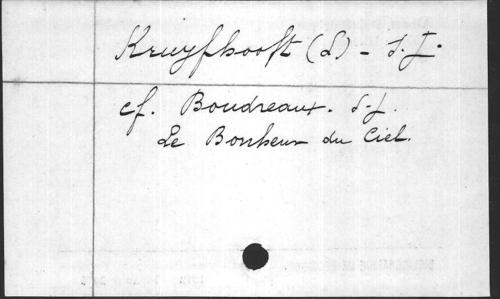 Kruyfhooft (L) - S.J.
cf. Boudreaux. S.J.
Le Bonheur du Ciel.